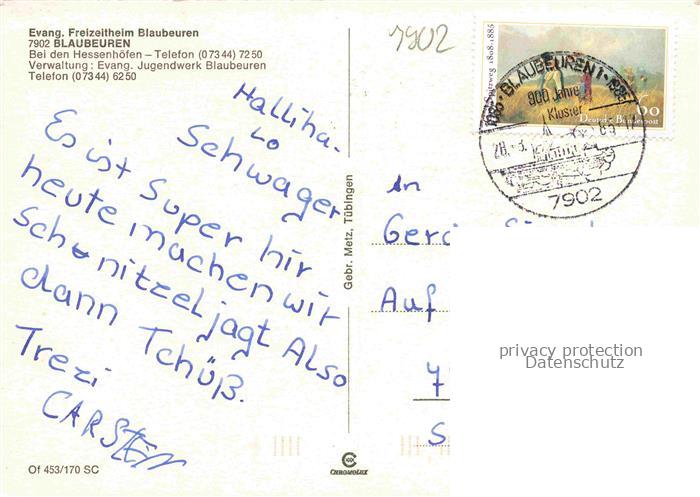 Evang. Freizeitheim Blaubeuren
7902 BLAUBEUREN
Bei den Hessenhöfen – Telefon (07344) 7250
Verwaltung: Evang. Jugendwerk Blaubeuren
Telefon (07344) 6250
7902
1808-1885
60
Deutsche Bundespost
BLAUBEUREN 1
900 Jahre
Kloster
7902
Halliha-
lo
Schwager
Es ist Super hir
heute machen wir
Schnitzeljagt Also
dann Tchüß.
Trezi
CARSTEN
Gebr. Metz, Tübingen
An
Auf
7
S
privacy protection
Datenschutz
Of 453/170 SC
CHROMOLUX